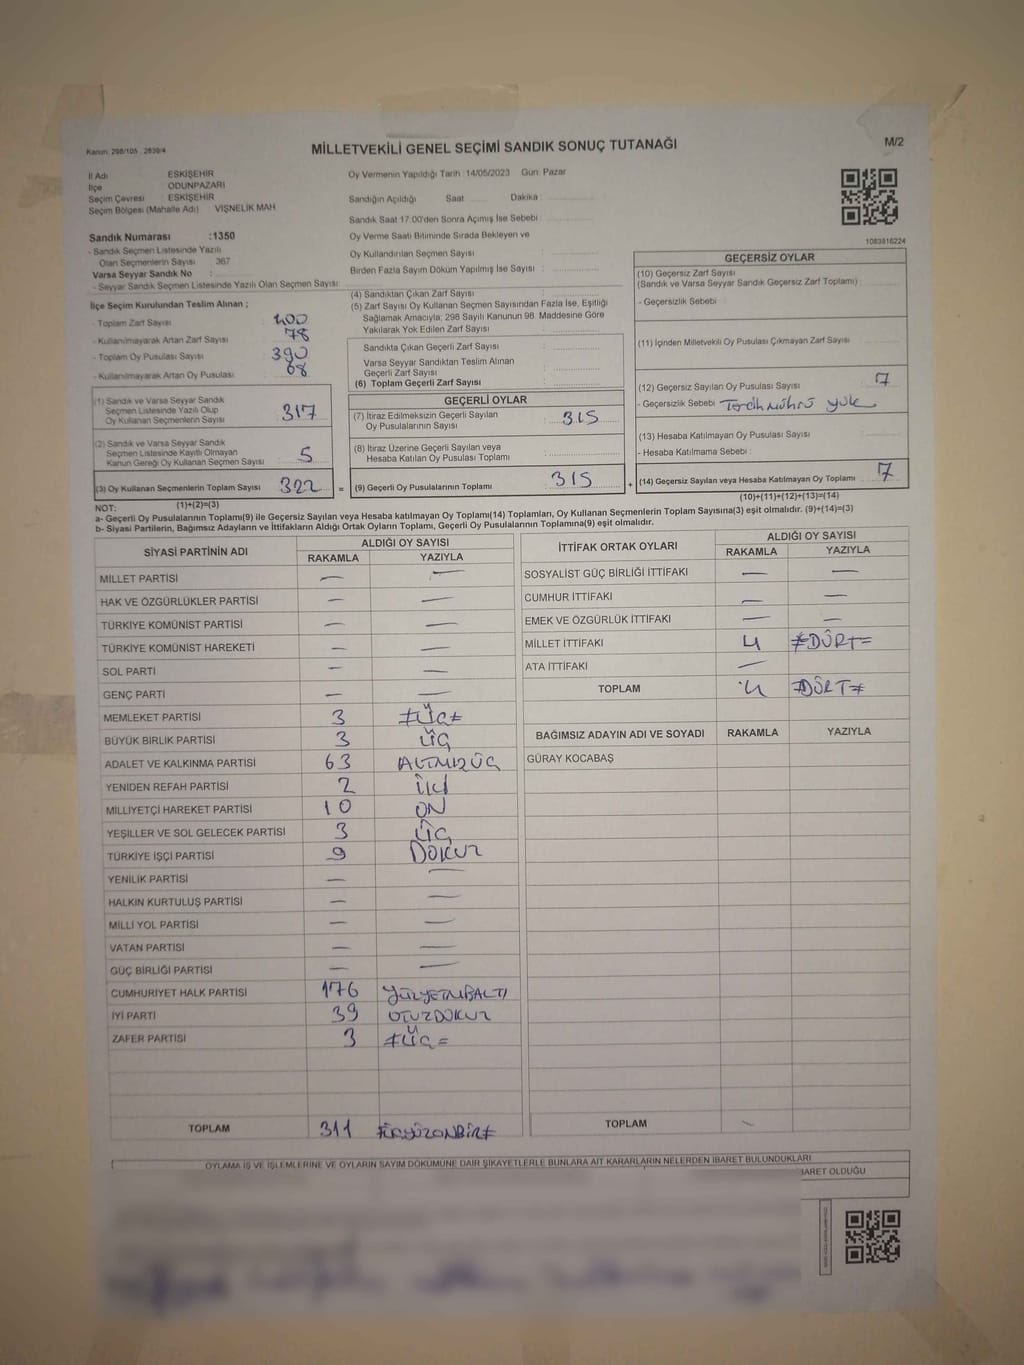 Kanun: 298/105 , 2839/4
MİLLETVEKİLİ GENEL SEÇİMİ SANDIK SONUÇ TUTANAĞI
M/2
İl Adı ESKİŞEHİR
İlçe ODUNPAZARI
Seçim Çevresi ESKİŞEHİR
Seçim Bölgesi (Mahalle Adı) VİŞNELİK MAH
Sandık Numarası :1350
- Sandık Seçmen Listesinde Yazılı
Olan Seçmenlerin Sayısı 367
Varsa Seyyar Sandık No :
- Seyyar Sandık Seçmen Listesinde Yazılı Olan Seçmen Sayısı :
İlçe Seçim Kurulundan Teslim Alınan ;
- Toplam Zarf Sayısı 400
- Kullanılmayarak Artan Zarf Sayısı 78
- Toplam Oy Pusulası Sayısı 390
- Kullanılmayarak Artan Oy Pusulası 68
(1) Sandık ve Varsa Seyyar Sandık
Seçmen Listesinde Yazılı Olup
Oy Kullanan Seçmenlerin Sayısı 317
(2) Sandık ve Varsa Seyyar Sandık
Seçmen Listesinde Kayıtlı Olmayan
Kanun Gereği Oy Kullanan Seçmen Sayısı 5
(3) Oy Kullanan Seçmenlerin Toplam Sayısı 322
(1)+(2)=(3)
Oy Vermenin Yapıldığı Tarih : 14/05/2023 Gün: Pazar
Sandığın Açıldığı Saat Dakika :
Sandık Saat 17:00'den Sonra Açılmış İse Sebebi :
Oy Verme Saati Bitiminde Sırada Bekleyen ve
Oy Kullandırılan Seçmen Sayısı :
Birden Fazla Sayım Döküm Yapılmış İse Sayısı :
(4) Sandıktan Çıkan Zarf Sayısı :
(5) Zarf Sayısı Oy Kullanan Seçmen Sayısından Fazla İse, Eşitliği
Sağlamak Amacıyla; 298 Sayılı Kanunun 98. Maddesine Göre
Yakılarak Yok Edilen Zarf Sayısı :
Sandıkta Çıkan Geçerli Zarf Sayısı :
Varsa Seyyar Sandıktan Teslim Alınan
Geçerli Zarf Sayısı :
(6) Toplam Geçerli Zarf Sayısı :
GEÇERLİ OYLAR
(7) İtiraz Edilmeksizin Geçerli Sayılan
Oy Pusulalarının Sayısı : 315
(8) İtiraz Üzerine Geçerli Sayılan veya
Hesaba Katılan Oy Pusulası Toplamı :
= (9) Geçerli Oy Pusulalarının Toplamı : 315
1083616224
GEÇERSİZ OYLAR
(10) Geçersiz Zarf Sayısı
(Sandık ve Varsa Seyyar Sandık Geçersiz Zarf Toplamı) :
- Geçersizlik Sebebi :
(11) İçinden Milletvekili Oy Pusulası Çıkmayan Zarf Sayısı :
(12) Geçersiz Sayılan Oy Pusulası Sayısı : 7
- Geçersizlik Sebebi : Tercih Mührü yok
(13) Hesaba Katılmayan Oy Pusulası Sayısı :
- Hesaba Katılmama Sebebi :
+ (14) Geçersiz Sayılan veya Hesaba Katılmayan Oy Toplamı : 7
(10)+(11)+(12)+(13)=(14)
NOT:
a- Geçerli Oy Pusulalarının Toplamı(9) ile Geçersiz Sayılan veya Hesaba katılmayan Oy Toplamı(14) Toplamları, Oy Kullanan Seçmenlerin Toplam Sayısına(3) eşit olmalıdır. (9)+(14)=(3)
b- Siyasi Partilerin, Bağımsız Adayların ve İttifakların Aldığı Ortak Oyların Toplamı, Geçerli Oy Pusulalarının Toplamına(9) eşit olmalıdır.
SİYASİ PARTİNİN ADI ALDIĞI OY SAYISI
RAKAMLA YAZIYLA
MİLLET PARTİSİ — —
HAK VE ÖZGÜRLÜKLER PARTİSİ — —
TÜRKİYE KOMÜNİST PARTİSİ — —
TÜRKİYE KOMÜNİST HAREKETİ — —
SOL PARTİ — —
GENÇ PARTİ — —
MEMLEKET PARTİSİ 3 ≠ÜÇ≠
BÜYÜK BİRLİK PARTİSİ 3 ÜÇ
ADALET VE KALKINMA PARTİSİ 63 ALTMIŞÜÇ
YENİDEN REFAH PARTİSİ 2 İKİ
MİLLİYETÇİ HAREKET PARTİSİ 10 ON
YEŞİLLER VE SOL GELECEK PARTİSİ 3 ÜÇ
TÜRKİYE İŞÇİ PARTİSİ 9 DOKUZ
YENİLİK PARTİSİ — —
HALKIN KURTULUŞ PARTİSİ — —
MİLLİ YOL PARTİSİ — —
VATAN PARTİSİ — —
GÜÇ BİRLİĞİ PARTİSİ — —
CUMHURİYET HALK PARTİSİ 176 YÜZYETMİŞALTI
İYİ PARTİ 39 OTUZDOKUZ
ZAFER PARTİSİ 3 ≠ÜÇ=
TOPLAM 311 ≠ÜÇYÜZONBİR≠
İTTİFAK ORTAK OYLARI ALDIĞI OY SAYISI
RAKAMLA YAZIYLA
SOSYALİST GÜÇ BİRLİĞİ İTTİFAKI — —
CUMHUR İTTİFAKI — —
EMEK VE ÖZGÜRLÜK İTTİFAKI — —
MİLLET İTTİFAKI 4 ≠DÖRT=
ATA İTTİFAKI —
TOPLAM 4 ≠DÖRT≠
BAĞIMSIZ ADAYIN ADI VE SOYADI RAKAMLA YAZIYLA
GÜRAY KOCABAŞ
TOPLAM -
OYLAMA İŞ VE İŞLEMLERİNE VE OYLARIN SAYIM DÖKÜMÜNE DAİR ŞİKAYETLERLE BUNLARA AİT KARARLARIN NELERDEN İBARET BULUNDUKLARI
İBARET OLDUĞU